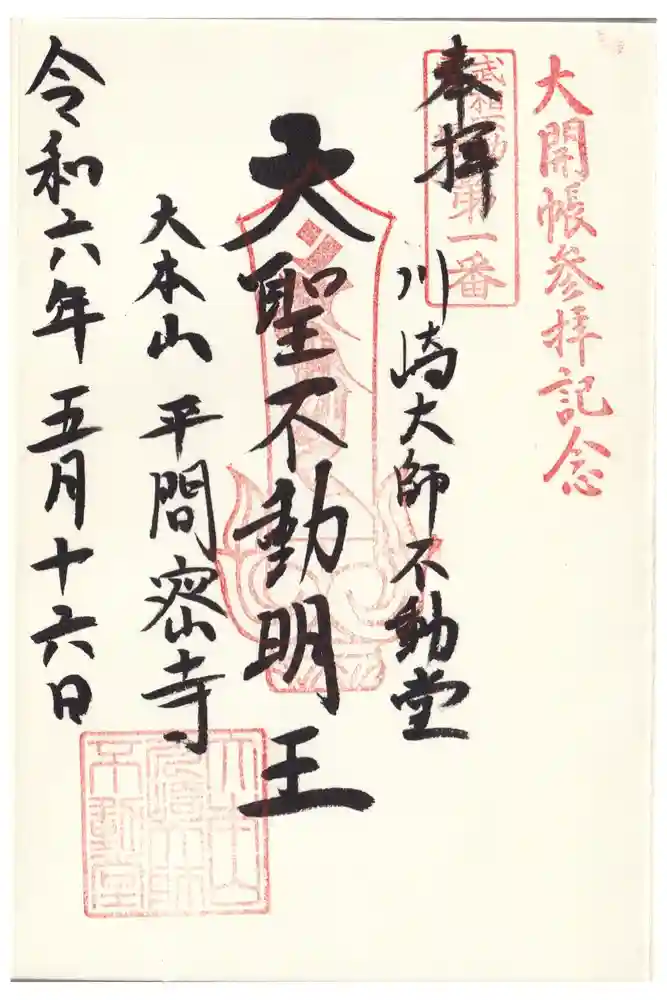 大開帳参拝記念
奉拝
武相不動
第一番
川崎大師不動堂
大聖不動明王
大本山 平間密寺
令和六年 五月十六日
大本山
川崎大師
不動堂